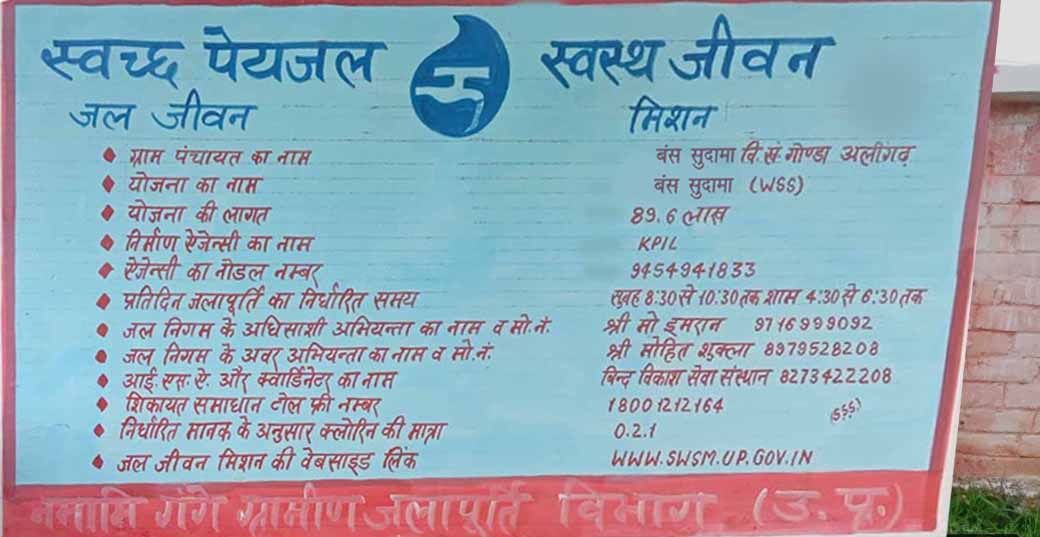 स्वच्छ पेयजल स्वस्थ जीवन
जल जीवन मिशन
ग्राम पंचायत का नाम बंस सुदामा वि.सं. गोण्डा अलीगढ़
योजना का नाम बंस सुदामा (WSS)
योजना की लागत 89.6 लाख
निर्माण ऐजेन्सी का नाम KPIL
ऐजेन्सी का नोडल नम्बर 9454941833
प्रतिदिन जलापूर्ति का निर्धारित समय सुबह 8:30 से 10:30 तक शाम 4:30 से 6:30 तक
जल निगम के अधिसाशी अभियन्ता का नाम व मो.नं. श्री मो इमरान 9716999092
जल निगम के अवर अभियन्ता का नाम व मो.नं. श्री मोहित शुक्ला 8979528208
आई.एस.ऐ. और क्वार्डिनेटर का नाम बिन्द विकाश सेवा संस्थान 8273422208
शिकायत समाधान टोल फ्री नम्बर 18001212164 (SSS)
निर्धारित मानक के अनुसार क्लोरिन की मात्रा 0.2.1
जल जीवन मिशन की वेबसाइड लिंक WWW.SWSM.UP.GOV.IN
नमामि गंगे ग्रामीण जलापूर्ति विभाग (उ.प्र.)